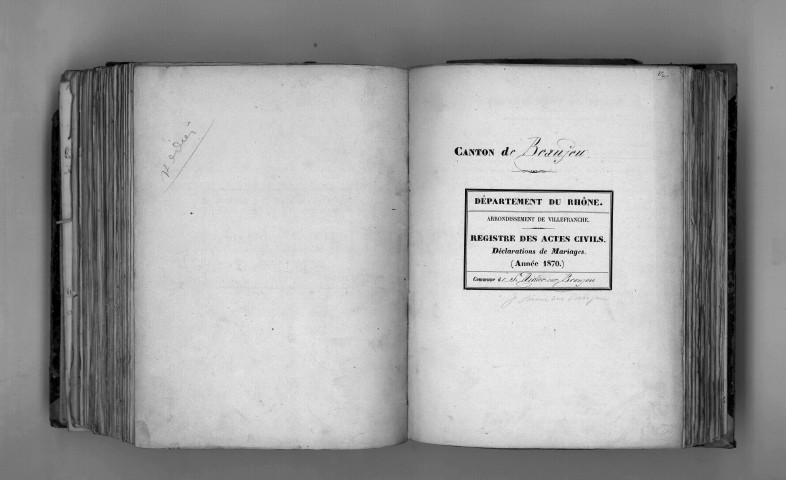 CANTON de Beaujeu.
DÉPARTEMENT DU RHÔNE.
ARRONDISSEMENT DE VILLEFRANCHE.
REGISTRE DES ACTES CIVILS.
Déclarations de Mariages.
(Année 1870.)
Commune de St Didier sur Beaujeu